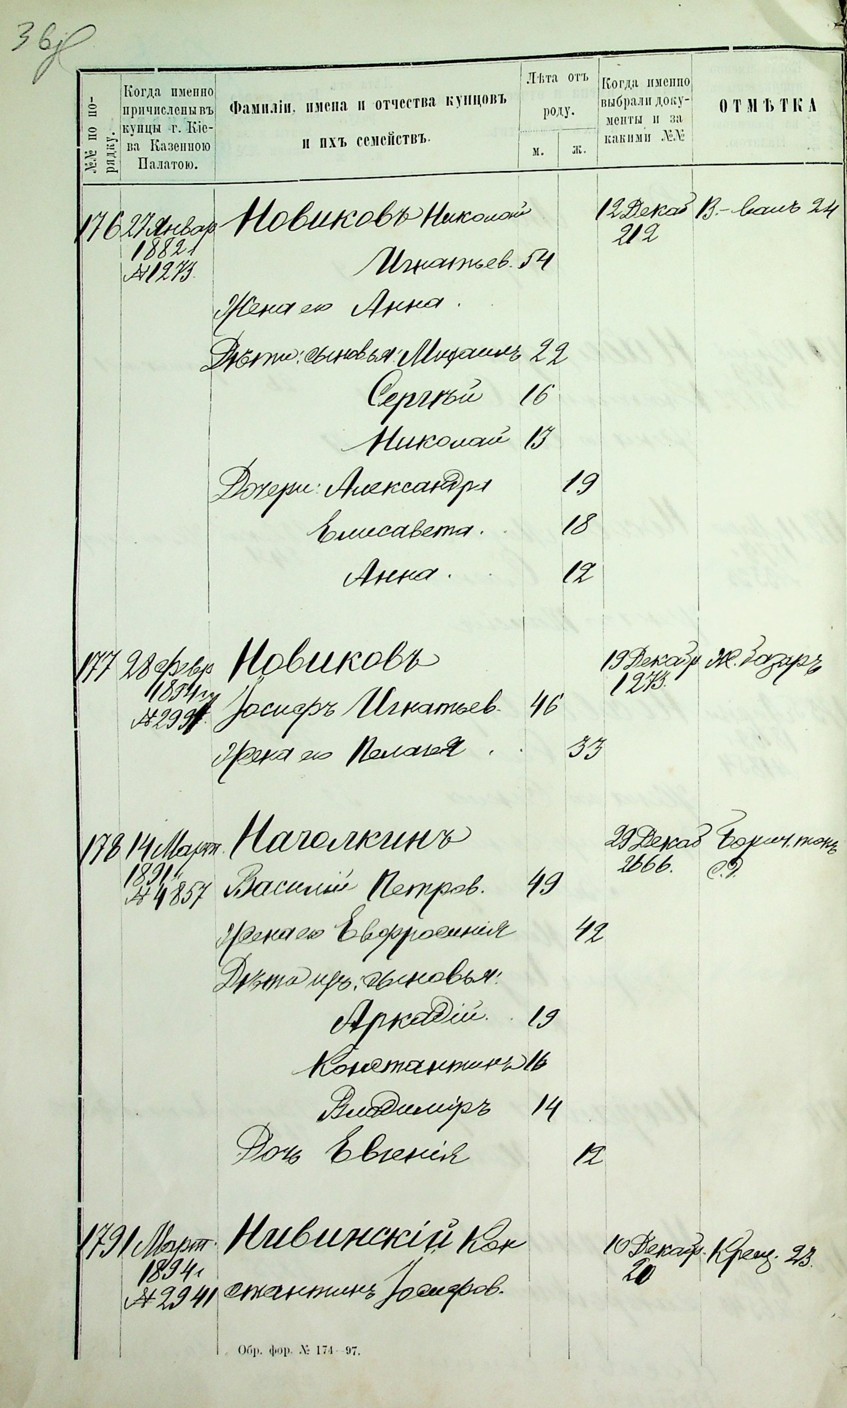 №№ по по-
рядку.
Когда именно
причислены въ
купцы г. Кіе-
ва Казенною
Палатою.
Фамиліи, имена и отчества купцовъ
и ихъ семействъ.
Лѣта отъ
роду.
м. ж.
Когда именно
выбрали доку-
менты и за
какими №№
ОТМѢТКА
176 27 Январ Новиковъ Николай 12 Декаб В.-валъ 24
1882 г 212
№ 1273 Игнатьев. 54
Жена его Анна.
Дѣти: сыновья: Михаилъ 22
Сергѣй 16
Николай 13
Дочери: Александра 19
Елисавета. 18
Анна. 12
177 28 Февр Новиковъ 19 Декабр Ж. базаръ
1894 г 1273.
№ 299 Іосифъ Игнатьев. 46
Жена его Пелагея 33
178 14 Март. Наголкинъ 29 Декаб Борич. токъ
1891 г 2666. с. д.
№ 4857 Василій Петров. 49
Жена его Евфросинія 42
Дѣти ихъ: сыновья:
Аркадій. 19
Константинъ 16
Владиміръ 14
Дочь Евгенія 12
179 1 Март. Нивинскій Кон 10 Декабр. Крещ. 23.
1894 г 20
№ 2941 стантинъ Іосифов.
Обр. фор. № 174—97.